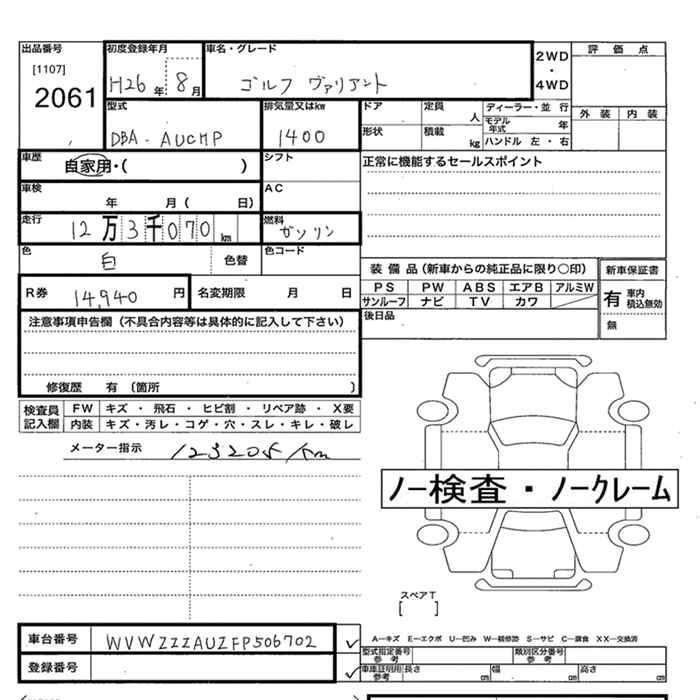 出品番号 初度登録年月 車名・グレード 2WD・4WD 評価点
[1107]
2061 H26年 8月 ゴルフ ヴァリアント
型式 排気量又はkw ドア 定員 人 ディーラー・並行 外装 内装
DBA-AUCHP 1400 形状 積載 kg モデル年式 年
ハンドル 左・右
車歴 自家用・( ) シフト 正常に機能するセールスポイント
車検 年 月( 日) AC
走行 12万3千070km 燃料 ガソリン
色 白 色替 色コード
装備品(新車からの純正品に限り○印) 新車保証書
R券 14,940円 名変期限 月 日 PS PW ABS エアB アルミW 有 車内積込無効
サンルーフ ナビ TV カワ
注意事項申告欄(不具合内容等は具体的に記入して下さい) 後日品 無
修復歴 有 (箇所 )
検査員記入欄 FW キズ・飛石・ヒビ割・リペア跡・X要
内装 キズ・汚レ・コゲ・穴・スレ・キレ・破レ
メーター指示 123205km
ノー検査・ノークレーム
スペアT
[ ]
車台番号 WVWZZZAUZFP506702 ✓ A―キズ E―エクボ U―凹み W―補修跡 S―サビ C―腐食 XX―交換済
型式指定番号 参考 類別区分番号 参考
登録番号 ✓ 車庫証明用 参考 長さ cm 幅 cm 高さ cm